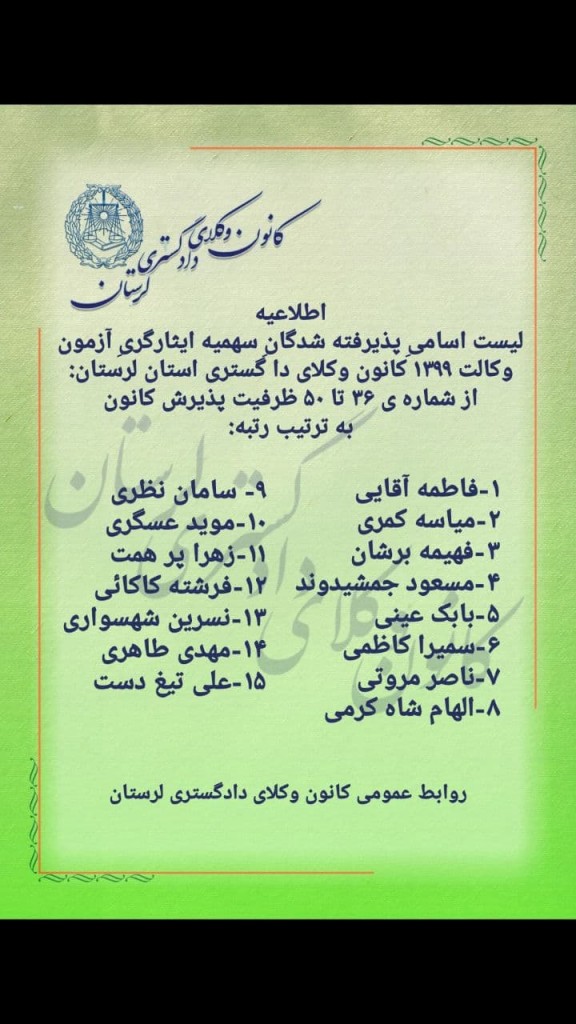 کانون وکلای دادگستری لرستان
اطلاعیه
لیست اسامی پذیرفته شدگان سهمیه ایثارگری آزمون
وکالت ۱۳۹۹ کانون وکلای دا گستری استان لرستان:
از شماره ی ۳۶ تا ۵۰ ظرفیت پذیرش کانون
به ترتیب رتبه:
۱-فاطمه آقایی
۲-میاسه کمری
۳-فهیمه برشان
۴-مسعود جمشیدوند
۵-بابک عینی
۶-سمیرا کاظمی
۷-ناصر مروتی
۸-الهام شاه کرمی
۹- سامان نظری
۱۰-موید عسگری
۱۱-زهرا پر همت
۱۲-فرشته کاکائی
۱۳-نسرین شهسواری
۱۴-مهدی طاهری
۱۵-علی تیغ دست
روابط عمومی کانون وکلای دادگستری لرستان
کانون وکلای دادگستری لرستان